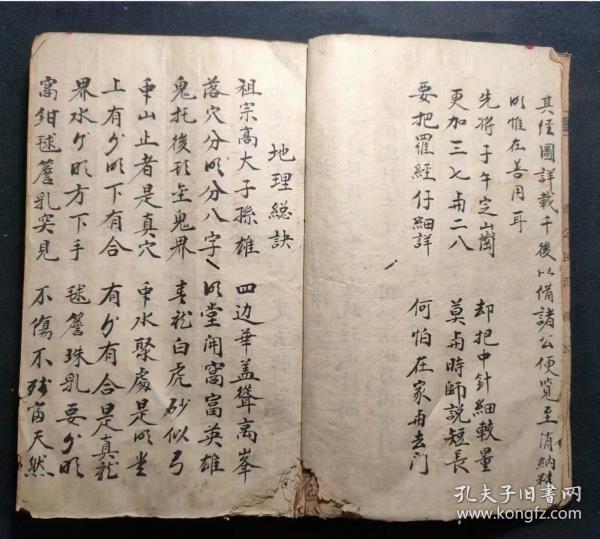 其經圖詳載于後以備諸公便覽至消納
明惟在善用耳
先将子午定山崗 却把中針細較量
更加三七與二八 莫與時師說短長
要把羅經仔細詳 何怕在家再去門
地理総訣
祖宗高大子孫雄 四边華盖聳高峯
落穴分明分八字 明堂開窩富英雄
鬼托後 鬼界 青龍白虎砂似弓
山止者是真穴 水聚處是明堂
上有分明下有合 有分有合是真龍
界水分明方下手 毬簷珠乳要分明
窩鉗毬簷乳突見 不傷不残苗天然
孔夫子旧書网
www.kongfz.com